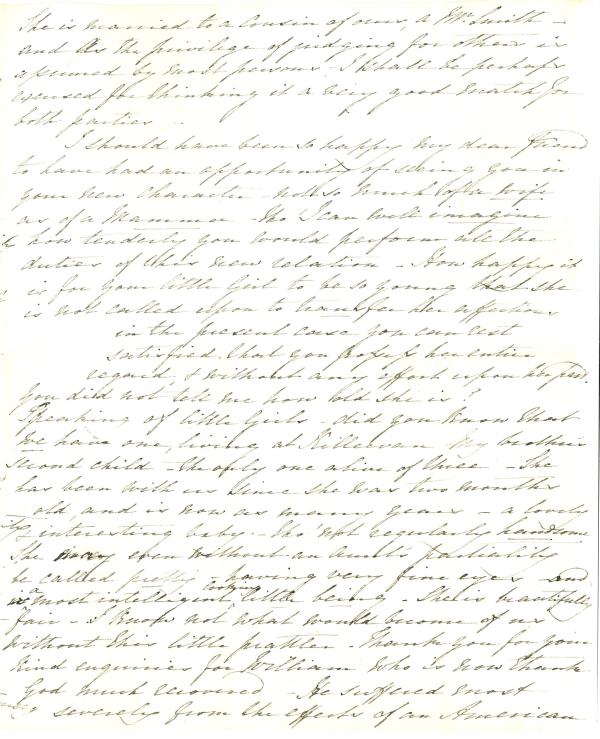 She is married to a Cousin of ours, a Mr Smith –
and as the privilege of judging for others is
assumed by most persons I shall be perhaps
excused for thinking it a very good match for
both parties ..
I should have been so happy my dear Friend
to have had an opportunity of seeing you in
your new character – not so much of a wife
as of a Mamma – tho I can well imagine
how tenderly you would perform all the
duties of this new relation – How happy it
is for your little Girl to be so young that she
is not called upon to transfer her affections
in the present case you can rest
satisfied that you possess her entire
regard, & without any effort upon her part.
You did not tell me how old she is?
Speaking of little Girls – did you know that
We have one, living at Killevan My brothers
second child – the only one alive of three – She
has been with us since she was two months
old and is now as many years – a lovely
interesting baby – tho' not regularly handsome
She may even without an Aunt's partiality
be called pretty – having very fine eyes – and
a most intelligent looking little being – She is beautifully
fair – I know not what would become of us
without this little prattler – Thank you for your
kind enquiries for William who is now thank
God much recovered – He suffered most
severely from the effects of an American